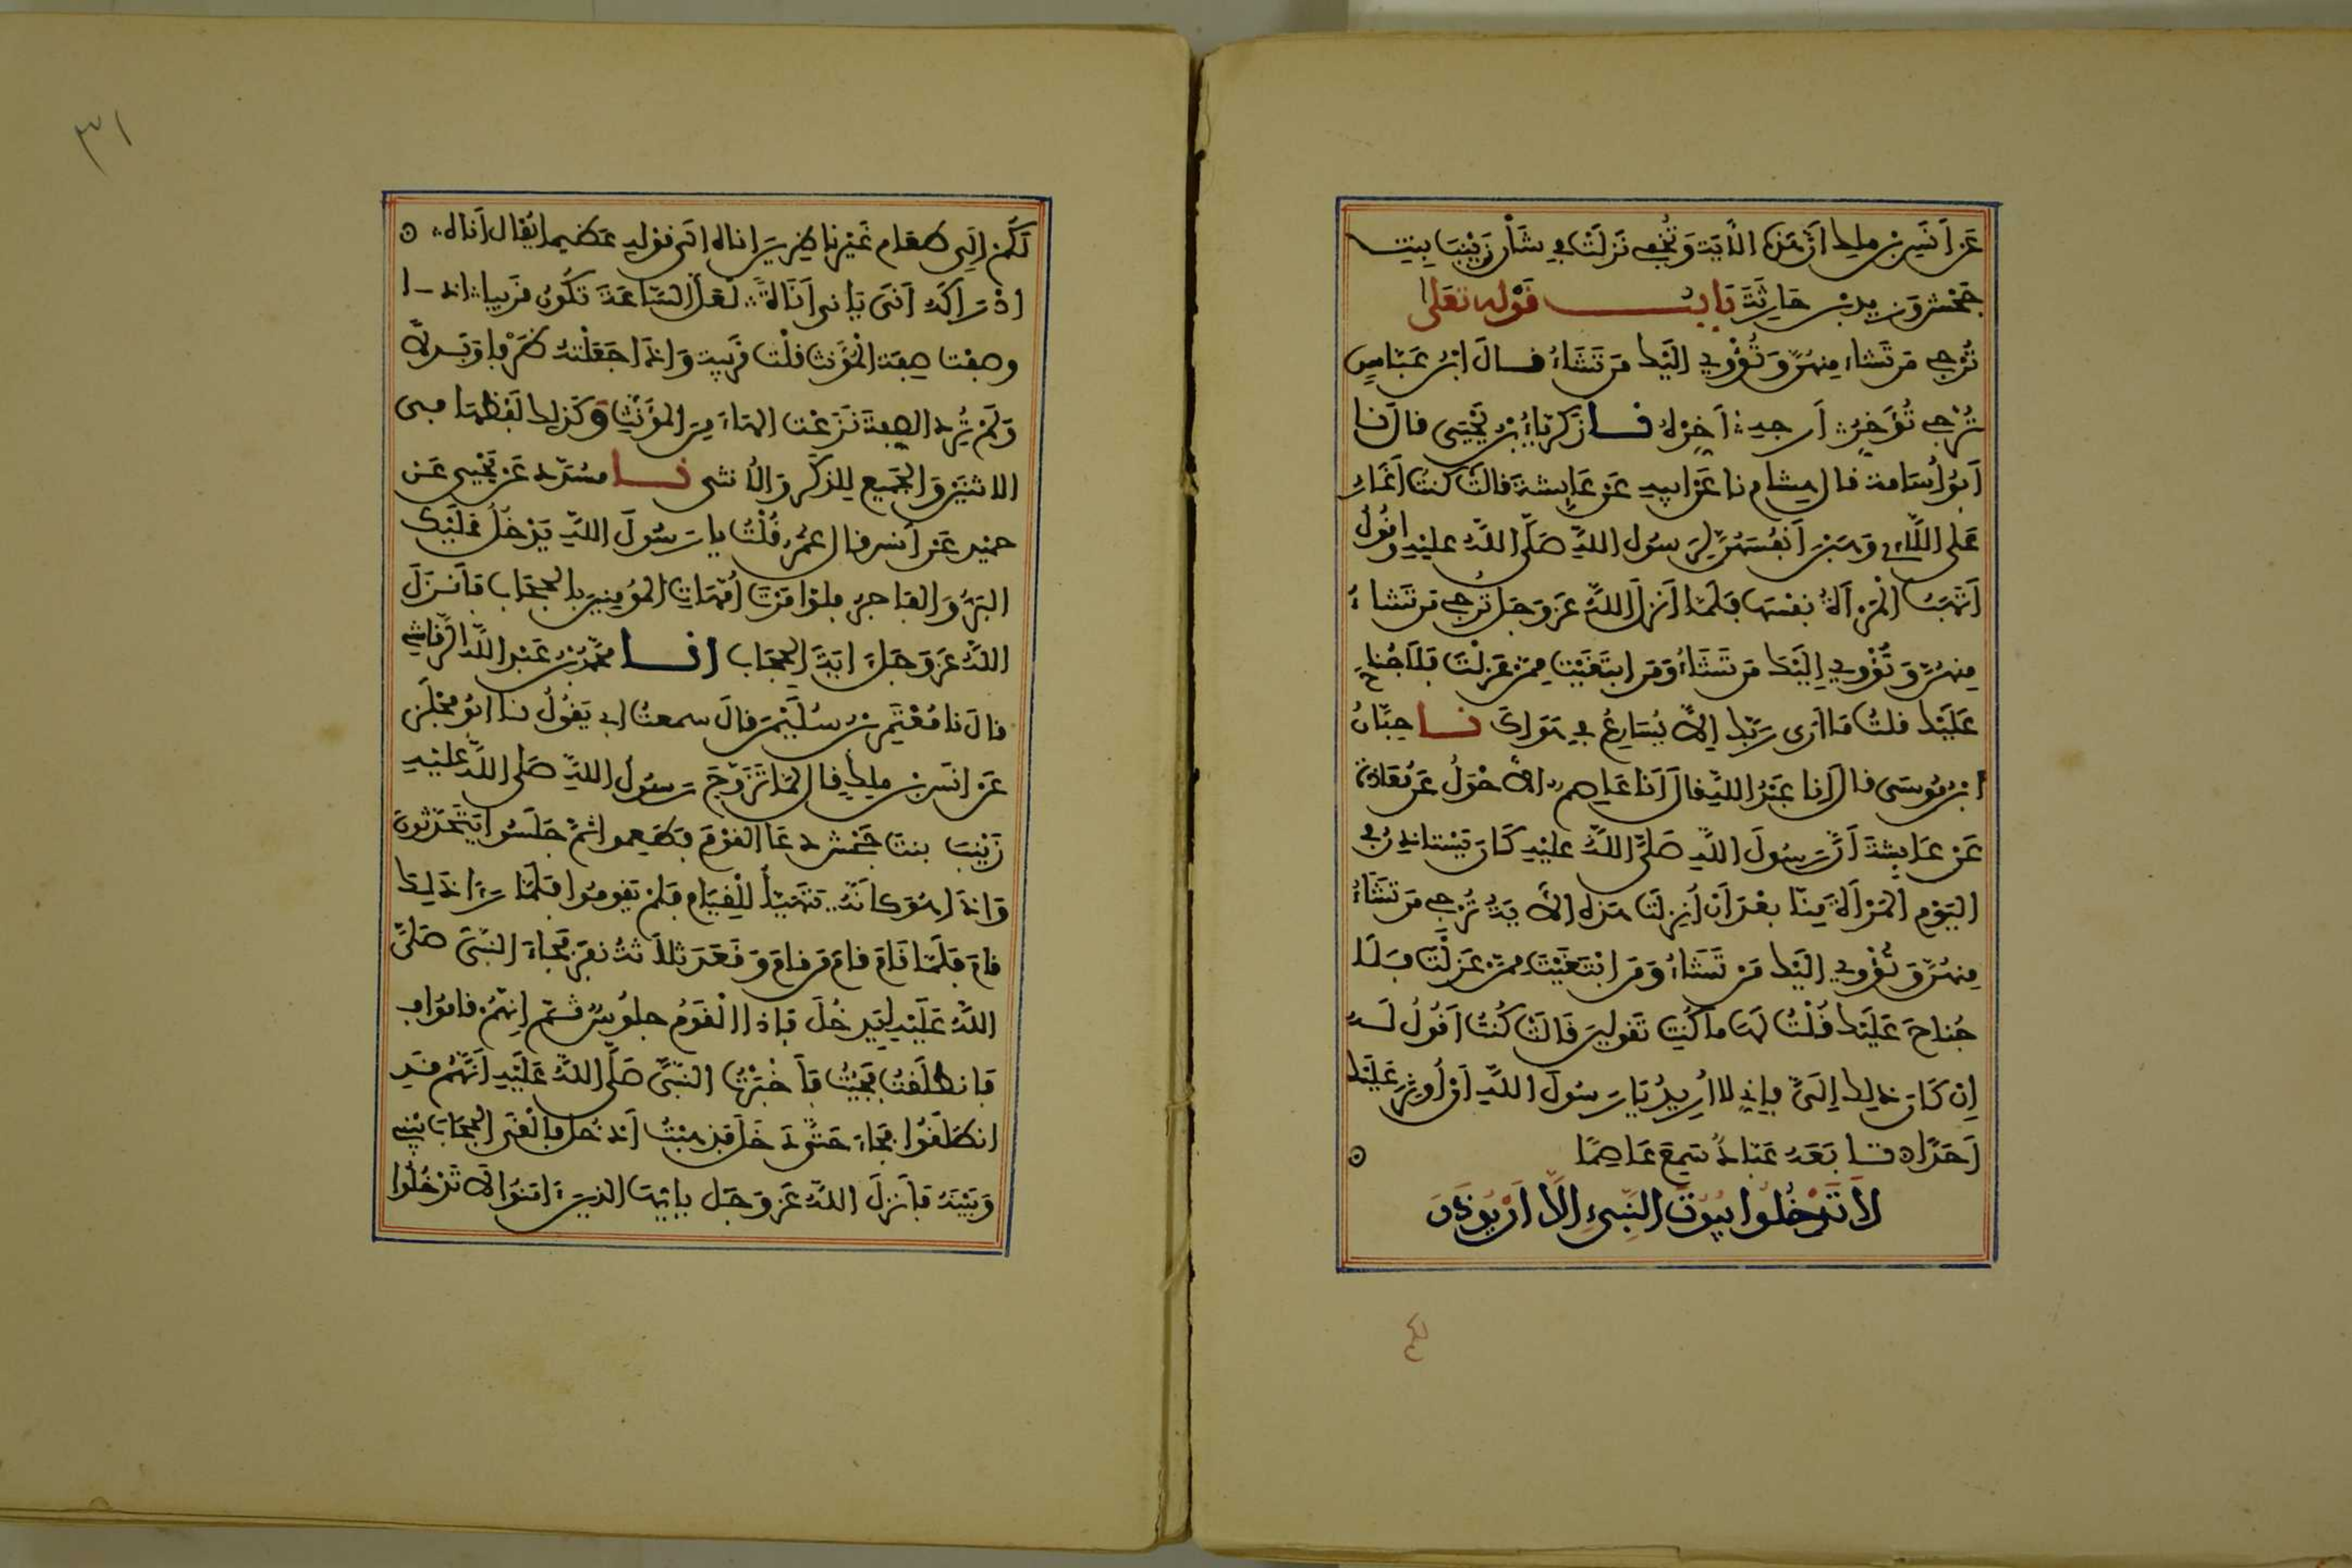 عَنْ اَنَسِ بْنِ ملِك اَنَّ هَذِهِ الْاَيَةَ وَتُخْفِي نَزَلَتْ فِي شَأْنِ زَيْنَبَ بِنِتِ
جَحْشٍ وَزيدِ بْنِ حَارِثَةَ بَابُ قَوْلِهِ تعَلى
تُرْجِي مَن تَشَاء مِنهُنَّ وَتُؤْوِي اِلَيْكَ مَن تَشَاءُ فَالَ ابْنُ عَبَّاسٍ
تُرْجِي تُؤَخِّرُ اَرجِيه اَخِّرْهُ نَا زَكَرِيَّاءُ بْنُ يَحْيَى قال نَا
اَبُو اُسَامة قال هشام نا عَنْ اَبِيهِ عَنْ عَايِشَةَ قالَتْ كُنتُ اَغَارُ
عَلَى اللَّاءِي وَهَبْنَ اَنفُسَهُنَّ لِرَسُولِ اللَّهِ صَلَّى اللَّهُ عليْهِ وَاقُولُ
اَتَهَبُ الْمَرْأَةُ نفْسَهَا فَلَمَّا اَنزَلَ اللَّهُ عَزَّ وَجَلَّ تُرْجِي مَن تَشَاءُ
مِنهُنَّ وَتُؤْوِي إِلَيْكَ مَن تَشَاءُ وَمَنِ ابتَغَيْتَ مِمَّنْ عَزَلْتَ فَلَا جُنَاحَ
عَلَيْكَ قلتُ مَا اَرَى رَبَّكَ إِلَّا يُسَارِعُ فِي هَوَاكَ نَا حِبَّانُ
ابْنُ مُوسَى قال اَنَا عَبْدُ اللَّهِ قَالَ اَنَا عَاصِم الْاَحْوَلُ عَنْ مُعَاذَةَ
عَنْ عَايِشَةَ اَنَّ رَسُولَ اللَّهِ صَلَّى اللَّهُ عليْهِ كَانَ يَسْتَاذِنُ فِي
الْيَوْمِ الْمَرْأَةَ مِنَّا بعْدَ اَن اُنزِلَت هَذِهِ الْاَيَةُ تُرْجِي مَن تَشَاءُ
مِنهُنَّ وَتُؤْوِي اِلَيْكَ مَنْ تَشَاءُ وَمَنِ ابْتَغَيْتَ مِمَّنْ عَزَلْتَ فَلَا
جُنَاحَ عَلَيْكَ فَقُلْتُ لَهَا مَا كُنتِ تَقُولِينَ قَالَتْ كُنتُ اَقُولُ لَهُ
اِنْ كَانَ ذَلِكَ إِلَيَّ فإِنِّي لا اُرِيدُ يَا رَسُولَ اللَّهِ اَنْ اُوثِرَ عَلَيْكَ
اَحَدًا تَابَعَهُ عَبَّادٌ سَمِعَ عَاصِمًا
لَا تَدْخُلُوا بيُوتَ النَّبِيِّ اِلَّا اَنْ يُوذَنَ
٣١
لَكُمْ إِلَى طَعَامٍ غَيْرَ نَاظِرِينَ اِنَاهُ اِلَى قوْلِهِ عَظِيما يُقَال اَنَاهُ
اِدْرَاكُهُ اَنَى يَانِي اَنَاةً لَعَلَّ السَّاعَةَ تَكُونُ قَرِيبا اذا
وصفْت صِفَة الْمُؤَنَّث قلْت قَرِيبة وَاِذَا جَعَلْتَهُ ظَرْفا وَبَدَلًا
وَلَمْ تُرِد الصِّفَةَ نَزَعْت الهَاءَ مِنَ المُؤَنَّثِ وَكَذَلِكَ لَفْظُهَا فِي
الاثنَيْنِ وَالجَمِيعِ لِلذَّكَرِ وَالْاُنثَى نَا مُسَدَّد عَنْ يَحْيِى عَن
حمَيْدٍ عَنْ اَنَسٍ قال عُمَرُ قُلْتُ يا رَسُولَ اللَّهِ يَدْخُلُ عَلَيْكَ
البَرُّ وَالفَاجِرُ فلوْ اَمَرْتَ اُمَّهَاتِ الْمُومِنِينَ بِالْحِجَابِ فَاَنزَلَ
اللَّهُ عَزَّ وَجَلَّ ايَةَ الْحِجَابِ انَا مُحَمَّدُ بْنُ عَبْدِ اللَّهِ الرَّقَاشِي
قالَ نَا مُعْتَمِرُ بْنُ سُلَيْمَن قالَ سمعتُ ابِي يَقُولُ نا ابُو مِجْلَزٍ
عَنْ اَنَسِ بْنِ ملِكٍ قال لَمَّا تَزَوَّجَ رَسُولُ اللَّهِ صَلَّى اللَّهُ عليْهِ
زَيْنَبَ بِنتَ جَحْشٍ دَعَا الْقَوْمَ فطَعِموا ثُمَّ جَلَسُوا يَتَحَدَّثُونَ
وَاِذَا هُوَ كَاَنَّهُ يَتَهَيَّأُ لِلْقِيَامِ فَلَمْ يَقُومُوا فَلَمَّا رَءَا ذَلِكَ
قامَ فَلَمَّا قَامَ قامَ مَن قامَ وَقَعَدَ ثَلَاثَةُ نَفَرٍ فَجَاءَ النَّبِيُّ صَلَّى
اللَّهُ عَلَيْهِ لِيَدخُلَ فَإِذَا الْقَوْمُ جلُوسٌ ثُمَّ إِنَّهُمْ قامُوا
فَانطَلَقْتُ فَجِيتُ فَاَخْبَرْتُ النَّبِيَّ صَلَّى اللَّهُ عَلَيْهِ اَنَّهُمْ قَدِ
انطَلَقُوا فَجَاءَ حَتَّى دَخَلَ فَذهَبْتُ اَدْخُلُ فَاَلْقَى الْحِجَابَ بَيْنِي
وَبَيْنَهُ فَاَنزَلَ اللَّهُ عَزَّ وَجَلَّ يا اَيُّهَا الذِينَ ءَامَنُوا لَا تَدْخُلُوا